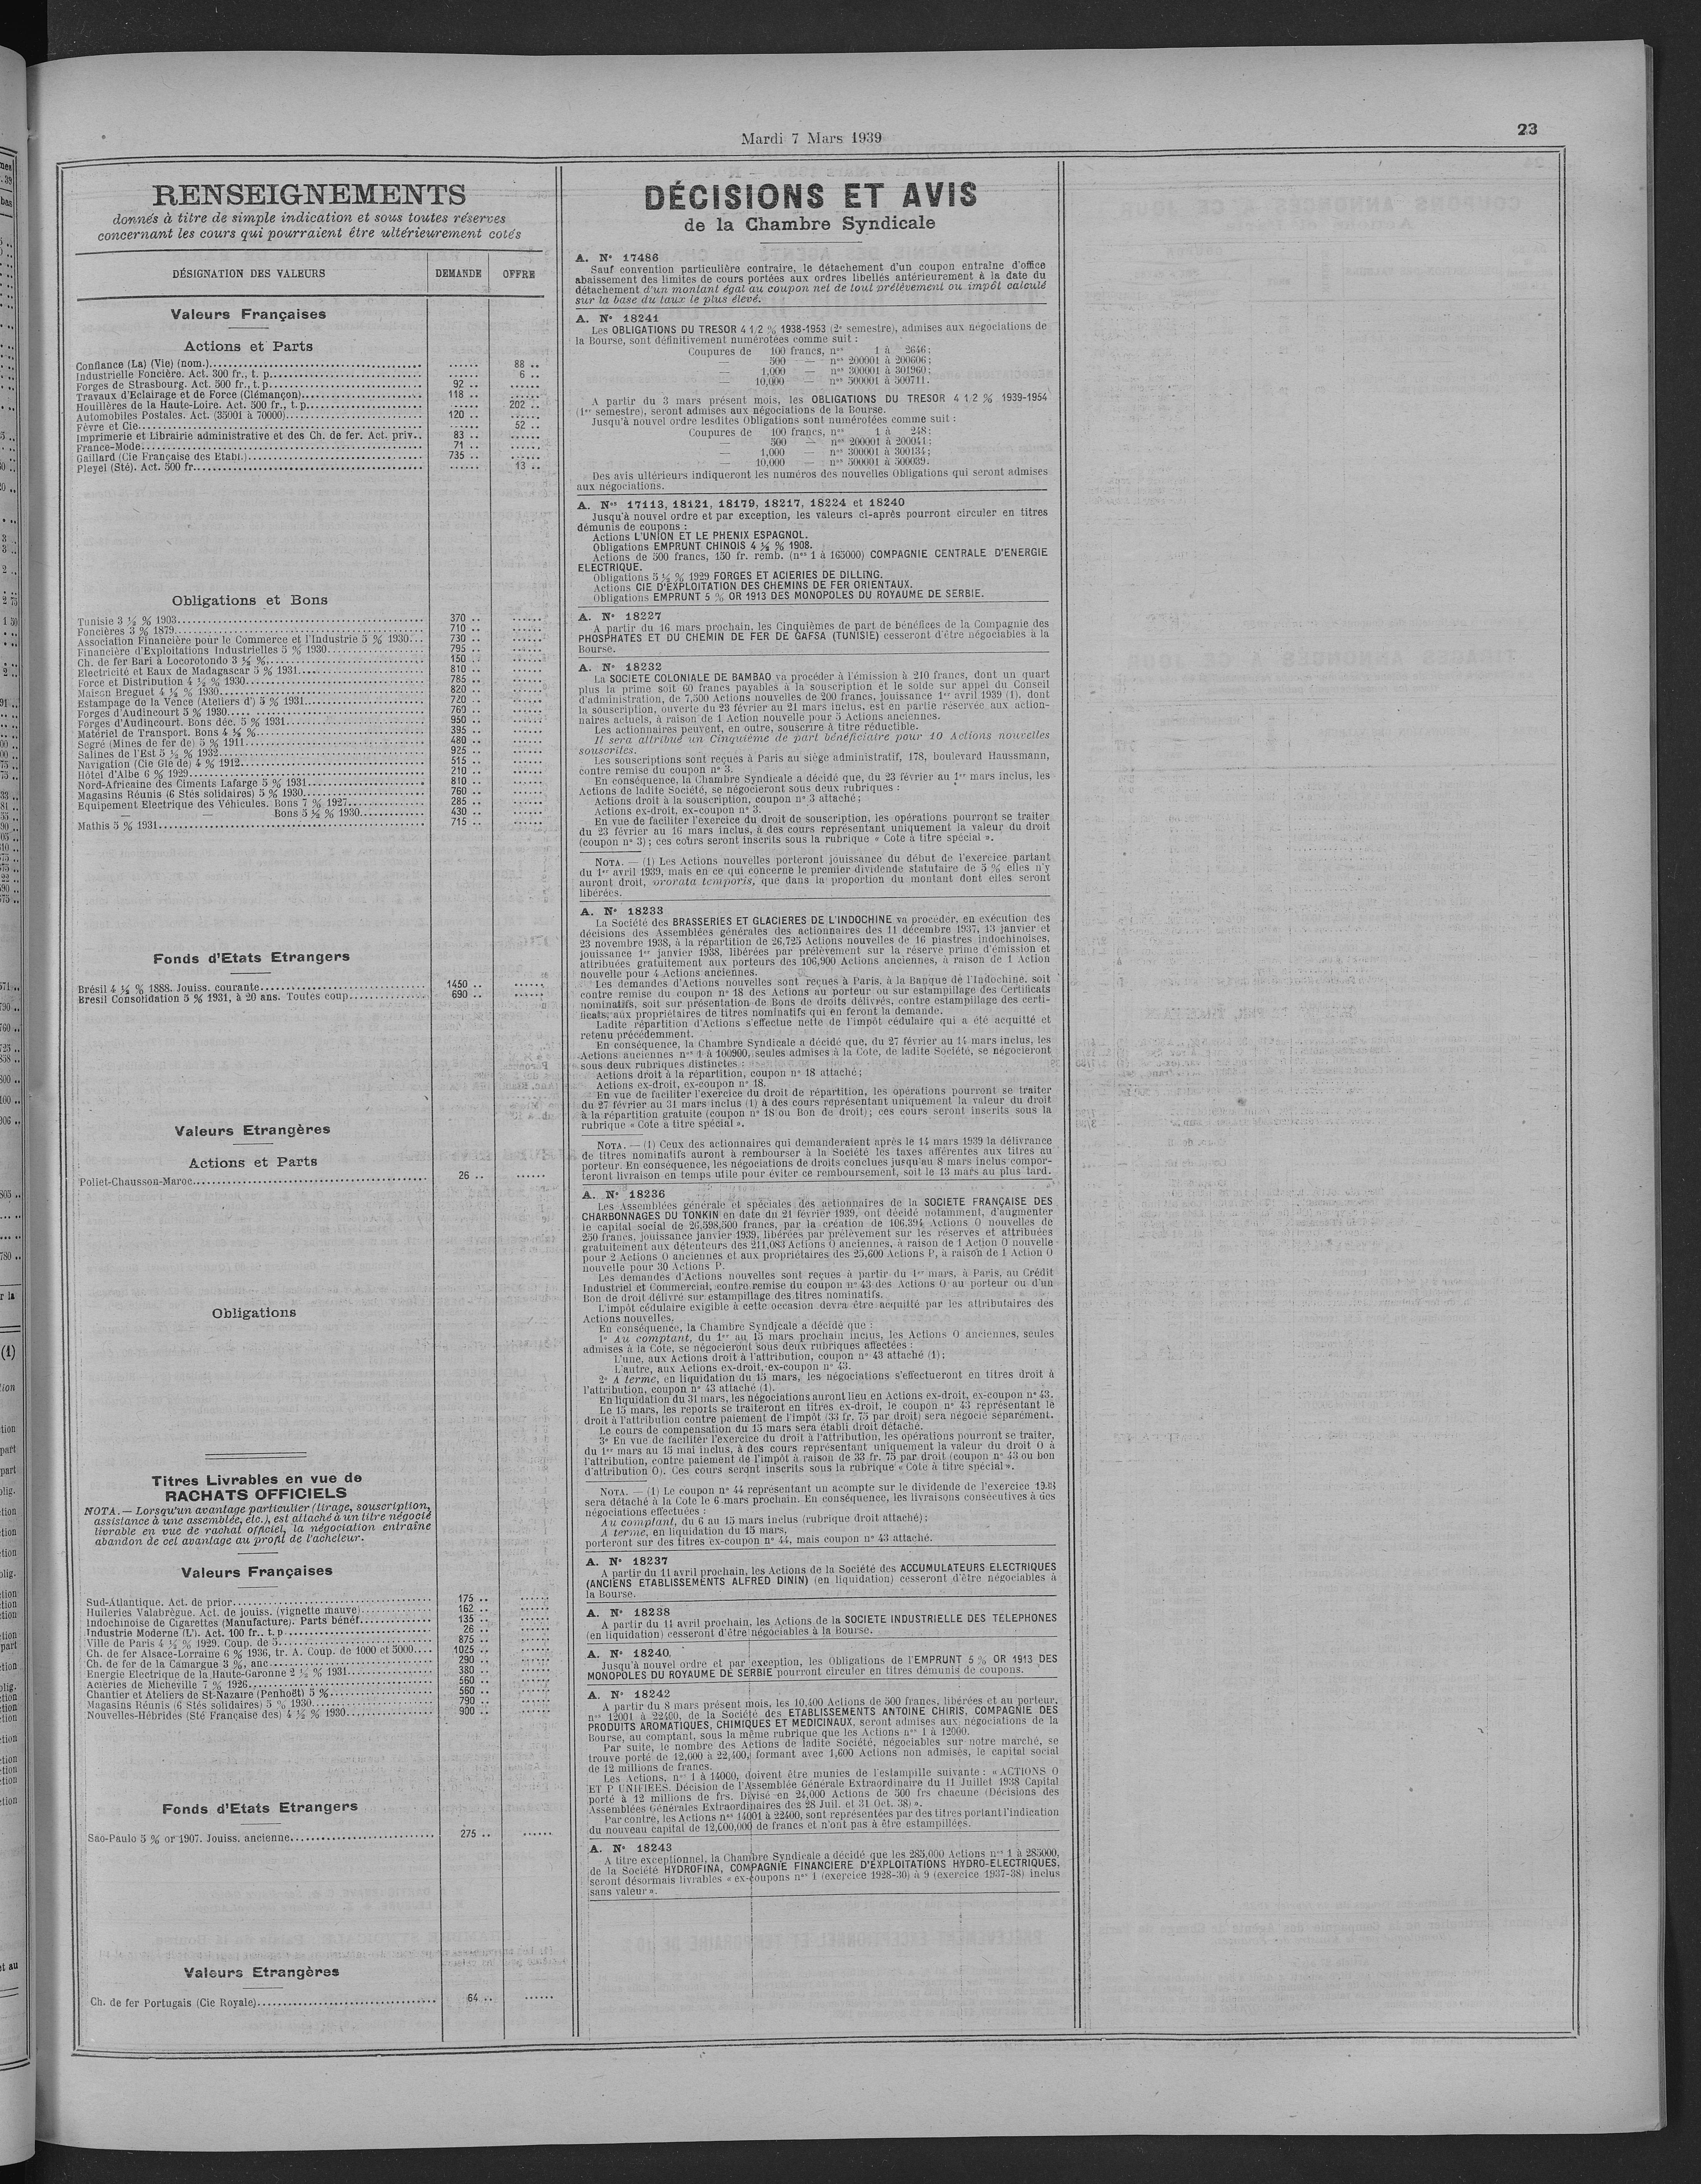 Mardi 7 Mars 1939
23
RENSEIGNEMENTS
donnés à titre de simple indication et sous toutes réserves
concernant les cours qui pourraient être ultérieurement cotés
DÉSIGNATION DES VALEURS DEMANDE OFFRE
Valeurs Françaises
Actions et Parts
Confiance (La) (Vie) (nom.) ...... 88 ..
Industrielle Foncière. Act. 300 fr., t. p. ...... 6 ..
Forges de Strasbourg. Act. 500 fr., t. p. 92 .. ......
Travaux d'Eclairage et de Force (Clémançon) 118 .. ......
Houillères de la Haute-Loire. Act. 500 fr., t. p. ...... 202 ..
Automobiles Postales. Act. (35001 à 70000) 120 .. ......
Fèvre et Cie ...... 52 ..
Imprimerie et Librairie administrative et des Ch. de fer. Act. priv.. 83 .. ......
France-Mode 71 .. ......
Gaillard (Cie Française des Etabl.) 735 .. ......
Pleyel (Sté). Act. 500 fr. ...... 13 ..
Obligations et Bons
Tunisie 3 ½ % 1903 370 .. ......
Foncières 3 % 1879 710 .. ......
Association Financière pour le Commerce et l'Industrie 5 % 1930 730 .. ......
Financière d'Exploitations Industrielles 5 % 1930 795 .. ......
Ch. de fer Bari à Locorotondo 3 ½ % 150 .. ......
Electricité et Eaux de Madagascar 5 % 1931 810 .. ......
Force et Distribution 4 ½ % 1930 785 .. ......
Maison Breguet 4 ½ % 1930 820 .. ......
Estampage de la Vence (Ateliers d') 5 % 1931 720 .. ......
Forges d'Audincourt 5 % 1930 760 .. ......
Forges d'Audincourt. Bons déc. 5 % 1931 950 .. ......
Matériel de Transport. Bons 4 ½ % 395 .. ......
Segré (Mines de fer de) 5 % 1911 480 .. ......
Salines de l'Est 5 ½ % 1932 925 .. ......
Navigation (Cie Gle de) 4 % 1912 515 .. ......
Hôtel d'Albe 6 % 1929 210 .. ......
Nord-Africaine des Ciments Lafarge 5 % 1931 810 .. ......
Magasins Réunis (6 Stés solidaires) 5 % 1930 760 .. ......
Equipement Electrique des Véhicules. Bons 7 % 1927 285 .. ......
— — Bons 5 ½ % 1930 430 .. ......
Mathis 5 % 1931 715 .. ......
Fonds d'Etats Etrangers
Brésil 4 ½ % 1888. Jouiss. courante 1450 .. ......
Bresil Consolidation 5 % 1931, à 20 ans. Toutes coup. 690 .. ......
Valeurs Etrangères
Actions et Parts
Poliet-Chausson-Maroc 26 .. ......
Obligations
Titres Livrables en vue de
RACHATS OFFICIELS
NOTA. — Lorsqu'un avantage particulier (tirage, souscription,
assistance à une assemblée, etc.), est attaché à un titre négocié
livrable en vue de rachat officiel, la négociation entraîne
abandon de cet avantage au profit de l'acheteur.
Valeurs Françaises
Sud-Atlantique. Act. de prior. 175 .. ......
Huileries Valabrègue. Act. de jouiss. (vignette mauve) 162 .. ......
Indochinoise de Cigarettes (Manufacture). Parts bénéf. 135 .. ......
Industrie Moderne (L'). Act. 100 fr., t. p. 26 .. ......
Ville de Paris 4 ½ % 1929. Coup. de 5 875 .. ......
Ch. de fer Alsace-Lorraine 6 % 1936, tr. A. Coup. de 1000 et 5000 1025 .. ......
Ch. de fer de la Camargue 3 %, anc. 290 .. ......
Energie Electrique de la Haute-Garonne 2 ½ % 1931 380 .. ......
Aciéries de Micheville 7 % 1926 560 .. ......
Chantier et Ateliers de St-Nazaire (Penhoët) 5 % 560 .. ......
Magasins Réunis (6 Stés solidaires) 5 % 1930 790 .. ......
Nouvelles-Hébrides (Sté Française des) 4 ½ % 1930 900 .. ......
Fonds d'Etats Etrangers
Sao-Paulo 5 % or 1907. Jouiss. ancienne 275 .. ......
Valeurs Etrangères
Ch. de fer Portugais (Cie Royale) 64 .. ......
DÉCISIONS ET AVIS
de la Chambre Syndicale
A. N° 17486
Sauf convention particulière contraire, le détachement d'un coupon entraîne d'office
abaissement des limites de cours portées aux ordres libellés antérieurement à la date du
détachement d'un montant égal au coupon net de tout prélèvement ou impôt calculé
sur la base du taux le plus élevé.
A. N° 18241
Les OBLIGATIONS DU TRESOR 4 1/2 % 1938-1953 (2e semestre), admises aux négociations de
la Bourse, sont définitivement numérotées comme suit :
Coupures de 100 francs, nos 1 à 2646;
— 500 — nos 200001 à 200606;
— 1,000 — nos 300001 à 301960;
— 10,000 — nos 500001 à 500711.
A partir du 3 mars présent mois, les OBLIGATIONS DU TRESOR 4 1/2 % 1939-1954
(1er semestre), seront admises aux négociations de la Bourse.
Jusqu'à nouvel ordre lesdites Obligations sont numérotées comme suit :
Coupures de 100 francs, nos 1 à 248;
— 500 — nos 200001 à 200041;
— 1,000 nos 300001 à 300134;
— 10,000 — nos 500001 à 500039.
Des avis ultérieurs indiqueront les numéros des nouvelles Obligations qui seront admises
aux négociations.
A. Nos 17113, 18121, 18179, 18217, 18224 et 18240
Jusqu'à nouvel ordre et par exception, les valeurs ci-après pourront circuler en titres
démunis de coupons :
Actions L'UNION ET LE PHENIX ESPAGNOL.
Obligations EMPRUNT CHINOIS 4 ½ % 1908.
Actions de 500 francs, 150 fr. remb. (nos 1 à 165000) COMPAGNIE CENTRALE D'ENERGIE
ELECTRIQUE.
Obligations 5 ½ % 1929 FORGES ET ACIERIES DE DILLING.
Actions CIE D'EXPLOITATION DES CHEMINS DE FER ORIENTAUX.
Obligations EMPRUNT 5 % OR 1913 DES MONOPOLES DU ROYAUME DE SERBIE.
A. N° 18227
A partir du 16 mars prochain, les Cinquièmes de part de bénéfices de la Compagnie des
PHOSPHATES ET DU CHEMIN DE FER DE GAFSA (TUNISIE) cesseront d'être négociables à la
Bourse.
A. N° 18232
La SOCIETE COLONIALE DE BAMBAO va procéder à l'émission à 210 francs, dont un quart
plus la prime soit 60 francs payables à la souscription et le solde sur appel du Conseil
d'administration, de 7,500 Actions nouvelles de 200 francs, jouissance 1er avril 1939 (1), dont
la souscription, ouverte du 23 février au 21 mars inclus, est en partie réservée aux action-
naires actuels, à raison de 1 Action nouvelle pour 5 Actions anciennes.
Les actionnaires peuvent, en outre, souscrire à titre réductible.
Il sera attribué un Cinquième de part bénéficiaire pour 10 Actions nouvelles
souscrites.
Les souscriptions sont reçues à Paris au siège administratif, 178, boulevard Haussmann,
contre remise du coupon n° 3.
En conséquence, la Chambre Syndicale a décidé que, du 23 février au 1er mars inclus, les
Actions de ladite Société, se négocieront sous deux rubriques :
Actions droit à la souscription, coupon n° 3 attaché;
Actions ex-droit, ex-coupon n° 3.
En vue de faciliter l'exercice du droit de souscription, les opérations pourront se traiter
du 23 février au 16 mars inclus, à des cours représentant uniquement la valeur du droit
(coupon n° 3); ces cours seront inscrits sous la rubrique « Cote à titre spécial ».
NOTA. — (1) Les Actions nouvelles porteront jouissance du début de l'exercice partant
du 1er avril 1939, mais en ce qui concerne le premier dividende statutaire de 5 % elles n'y
auront droit, prorata temporis, que dans la proportion du montant dont elles seront
libérées.
A. N° 18233
La Société des BRASSERIES ET GLACIERES DE L'INDOCHINE va procéder, en exécution des
décisions des Assemblées générales des actionnaires des 11 décembre 1937, 13 janvier et
23 novembre 1938, à la répartition de 26,725 Actions nouvelles de 16 piastres indochinoises,
jouissance 1er janvier 1938, libérées par prélèvement sur la réserve prime d'émission et
attribuées gratuitement aux porteurs des 106,900 Actions anciennes, à raison de 1 Action
nouvelle pour 4 Actions anciennes.
Les demandes d'Actions nouvelles sont reçues à Paris, à la Banque de l'Indochine, soit
contre remise du coupon n° 18 des Actions au porteur ou sur estampillage des Certificats
nominatifs, soit sur présentation de Bons de droits délivrés, contre estampillage des certi-
ficats, aux propriétaires de titres nominatifs qui en feront la demande.
Ladite répartition d'Actions s'effectue nette de l'impôt cédulaire qui a été acquitté et
retenu précédemment.
En conséquence, la Chambre Syndicale a décidé que, du 27 février au 14 mars inclus, les
Actions anciennes nos 1 à 100900, seules admises à la Cote, de ladite Société, se négocieront
sous deux rubriques distinctes :
Actions droit à la répartition, coupon n° 18 attaché;
Actions ex-droit, ex-coupon n° 18.
En vue de faciliter l'exercice du droit de répartition, les opérations pourront se traiter
du 27 février au 31 mars inclus (1) à des cours représentant uniquement la valeur du droit
à la répartition gratuite (coupon n° 18 ou Bon de droit); ces cours seront inscrits sous la
rubrique « Cote à titre spécial ».
NOTA. — (1) Ceux des actionnaires qui demanderaient après le 14 mars 1939 la délivrance
de titres nominatifs auront à rembourser à la Société les taxes afférentes aux titres au
porteur. En conséquence, les négociations de droits conclues jusqu'au 8 mars inclus compor-
teront livraison en temps utile pour éviter ce remboursement, soit le 13 mars au plus tard.
A. N° 18236
Les Assemblées générale et spéciales des actionnaires de la SOCIETE FRANÇAISE DES
CHARBONNAGES DU TONKIN en date du 21 février 1939, ont décidé notamment, d'augmenter
le capital social de 26,598,500 francs, par la création de 106.394 Actions O nouvelles de
250 francs, jouissance janvier 1939, libérées par prélèvement sur les réserves et attribuées
gratuitement aux détenteurs des 211,083 Actions O anciennes, à raison de 1 Action O nouvelle
pour 2 Actions O anciennes et aux propriétaires des 25,600 Actions P, à raison de 1 Action O
nouvelle pour 30 Actions P.
Les demandes d'Actions nouvelles sont reçues à partir du 1er mars, à Paris, au Crédit
Industriel et Commercial, contre remise du coupon n° 43 des Actions O au porteur ou d'un
Bon de droit délivré sur estampillage des titres nominatifs.
L'impôt cédulaire exigible à cette occasion devra être acquitté par les attributaires des
Actions nouvelles.
En conséquence, la Chambre Syndicale a décidé que :
1° Au comptant, du 1er au 15 mars prochain inclus, les Actions O anciennes, seules
admises à la Cote, se négocieront sous deux rubriques affectées :
L'une, aux Actions droit à l'attribution, coupon n° 43 attaché (1);
L'autre, aux Actions ex-droit, ex-coupon n° 43.
2° A terme, en liquidation du 15 mars, les négociations s'effectueront en titres droit à
l'attribution, coupon n° 43 attaché (1).
En liquidation du 31 mars, les négociations auront lieu en Actions ex-droit, ex-coupon n° 43.
Le 15 mars, les reports se traiteront en titres ex-droit, le coupon n° 43 représentant le
droit à l'attribution contre paiement de l'impôt (33 fr. 75 par droit) sera négocié séparément.
Le cours de compensation du 15 mars sera établi droit détaché.
3° En vue de faciliter l'exercice du droit à l'attribution, les opérations pourront se traiter,
du 1er mars au 15 mai inclus, à des cours représentant uniquement la valeur du droit O à
l'attribution, contre paiement de l'impôt à raison de 33 fr. 75 par droit (coupon n° 43 ou bon
d'attribution O). Ces cours seront inscrits sous la rubrique « Cote à titre spécial ».
NOTA. — (1) Le coupon n° 44 représentant un acompte sur le dividende de l'exercice 1938
sera détaché à la Cote le 6 mars prochain. En conséquence, les livraisons consécutives à des
négociations effectuées :
Au comptant, du 6 au 15 mars inclus (rubrique droit attaché);
A terme, en liquidation du 15 mars,
porteront sur des titres ex-coupon n° 44, mais coupon n° 43 attaché.
A. N° 18237
A partir du 11 avril prochain, les Actions de la Société des ACCUMULATEURS ELECTRIQUES
(ANCIENS ETABLISSEMENTS ALFRED DININ) (en liquidation) cesseront d'être négociables à
la Bourse.
A. N° 18238
A partir du 11 avril prochain, les Actions de la SOCIETE INDUSTRIELLE DES TELEPHONES
(en liquidation) cesseront d'être négociables à la Bourse.
A. N° 18240
Jusqu'à nouvel ordre et par exception, les Obligations de l'EMPRUNT 5 % OR 1913 DES
MONOPOLES DU ROYAUME DE SERBIE pourront circuler en titres démunis de coupons.
A. N° 18242
A partir du 8 mars présent mois, les 10,400 Actions de 500 francs, libérées et au porteur,
nos 12001 à 22400, de la Société des ETABLISSEMENTS ANTOINE CHIRIS, COMPAGNIE DES
PRODUITS AROMATIQUES, CHIMIQUES ET MEDICINAUX, seront admises aux négociations de la
Bourse, au comptant, sous la même rubrique que les Actions nos 1 à 12000.
Par suite, le nombre des Actions de ladite Société, négociables sur notre marché, se
trouve porté de 12,000 à 22,400, formant avec 1,600 Actions non admises, le capital social
de 12 millions de francs.
Les Actions, nos 1 à 14000, doivent être munies de l'estampille suivante : « ACTIONS O
ET P UNIFIEES. Décision de l'Assemblée Générale Extraordinaire du 11 Juillet 1938 Capital
porté à 12 millions de frs. Divisé en 24,000 Actions de 500 frs chacune (Décisions des
Assemblées Générales Extraordinaires des 28 Juil. et 31 Oct. 38) ».
Par contre, les Actions nos 14001 à 22400, sont représentées par des titres portant l'indication
du nouveau capital de 12,000,000 de francs et n'ont pas à être estampillées.
A. N° 18243
A titre exceptionnel, la Chambre Syndicale a décidé que les 285,000 Actions nos 1 à 285000,
de la Société HYDROFINA, COMPAGNIE FINANCIERE D'EXPLOITATIONS HYDRO-ELECTRIQUES,
seront désormais livrables « ex-coupons nos 1 (exercice 1928-30) à 9 (exercice 1937-38) inclus
sans valeur ».